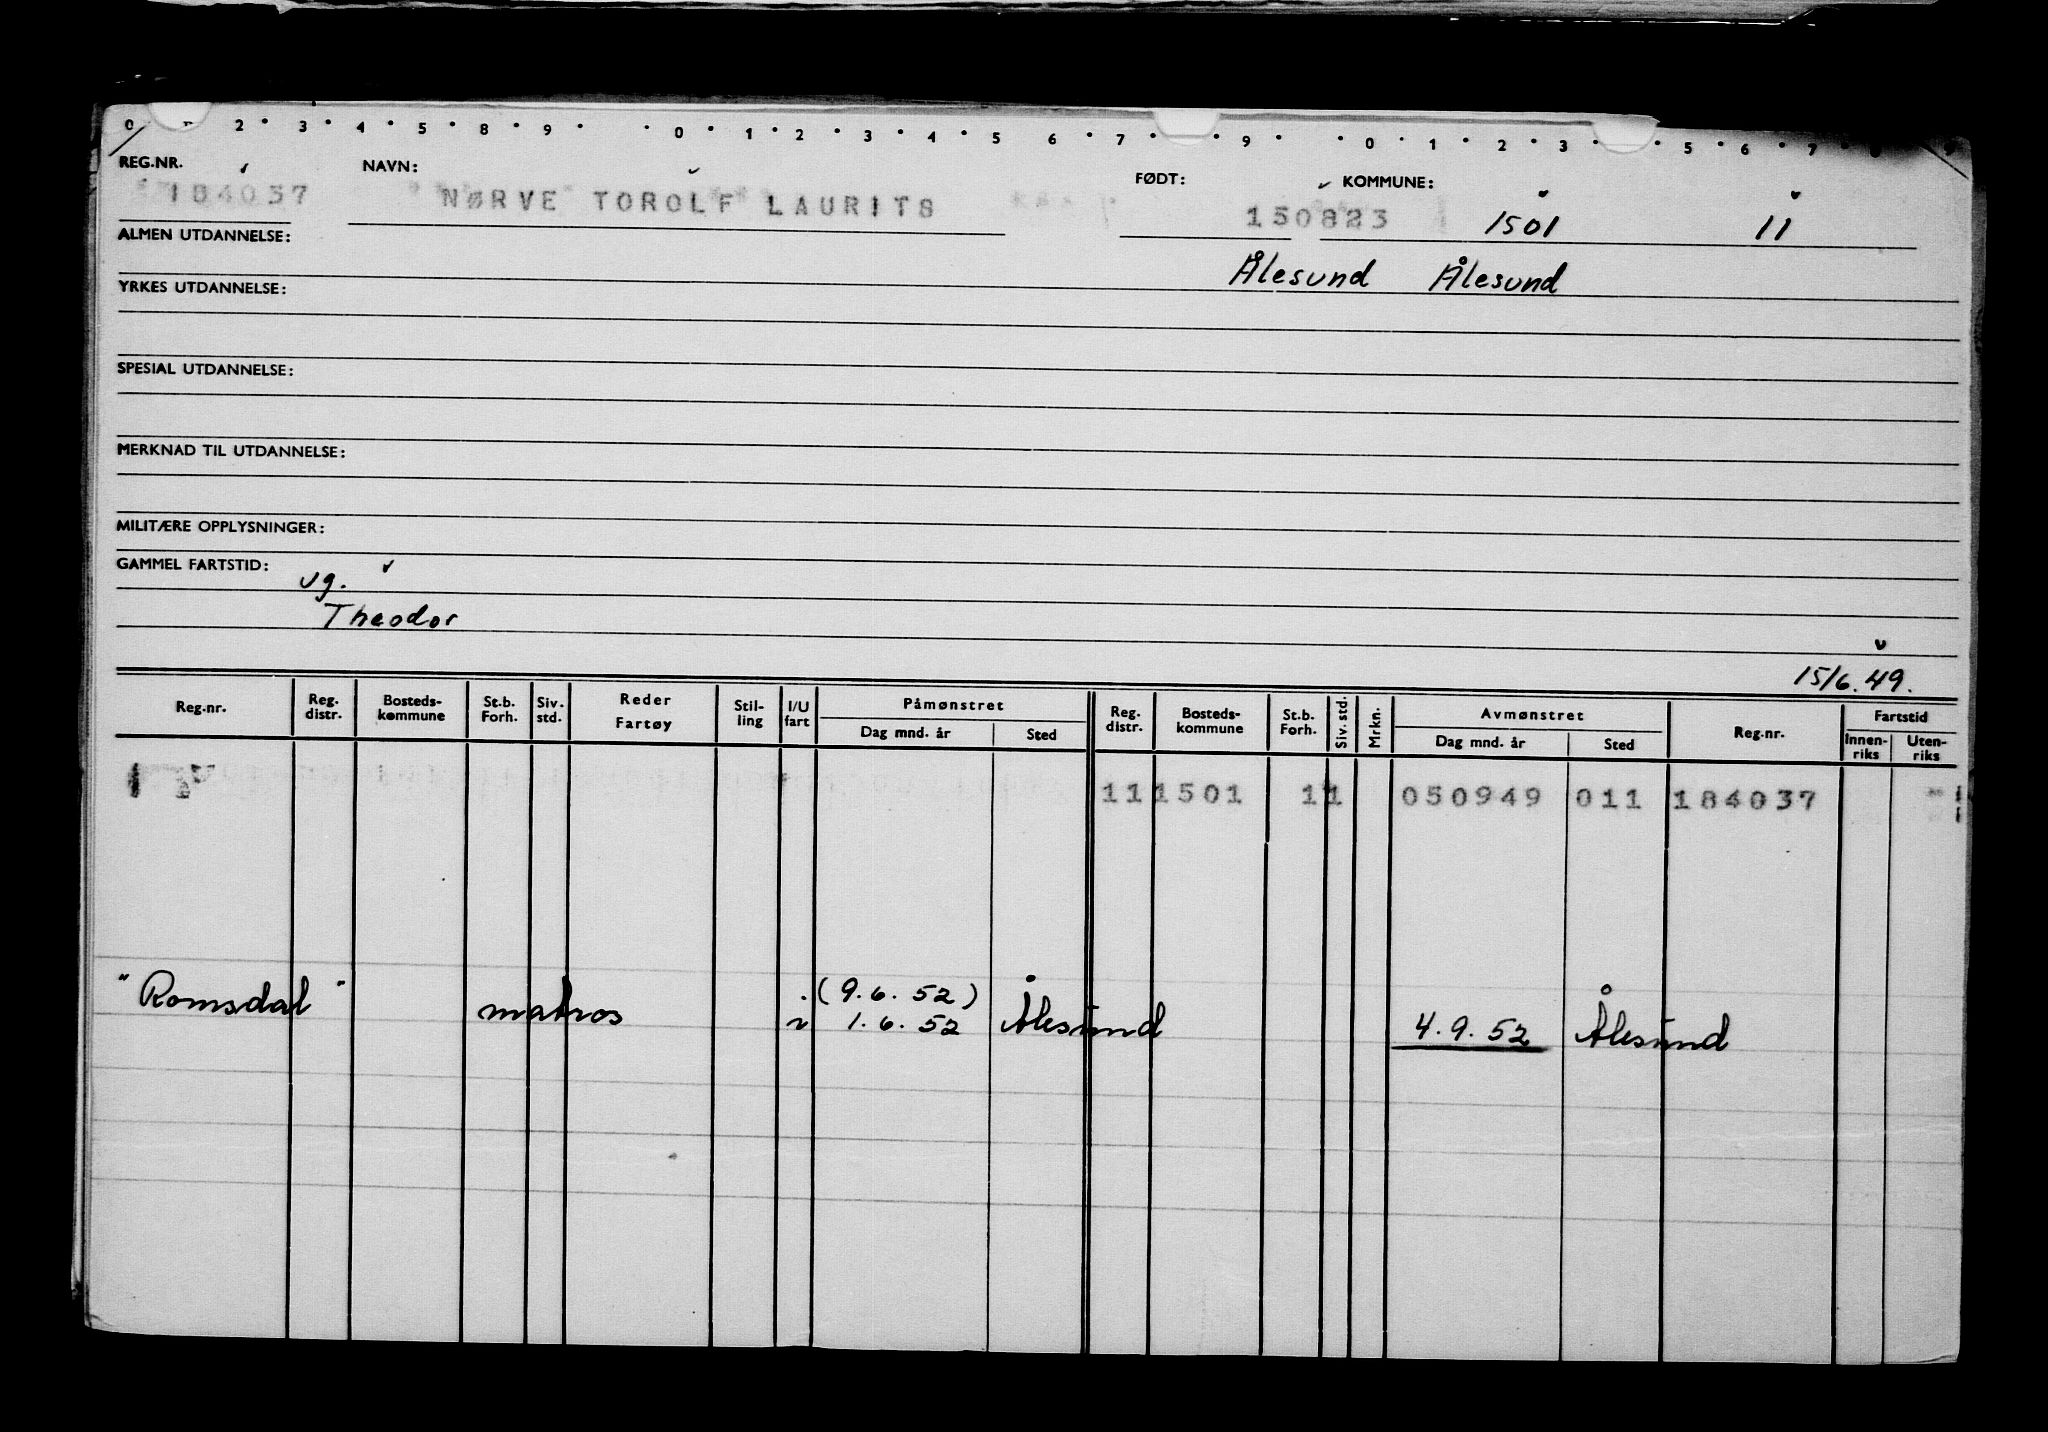 0 2 · 3 · 4 · 5 · 8 · 9 · · 0 · 1 · 2 · 3 · 4 · 5 6 · 7 · · 9 · · 0 · 1 · 2 · 3 · · 5 · 6 · 7 ·
REG.NR. NAVN: FØDT: KOMMUNE:
184037 NØRVE TOROLF LAURITS 150823 1501 11
ALMEN UTDANNELSE:
Ålesund Ålesund
YRKES UTDANNELSE:
SPESIAL UTDANNELSE:
MERKNAD TIL UTDANNELSE:
MILITÆRE OPPLYSNINGER:
GAMMEL FARTSTID:
vg.
Theodor
15/6.49.
Reg.nr. Reg. distr. Bosteds- kommune St.b. Forh. Siv. std. Reder Fartøy Stil- ling I/U fart Påmønstret Dag mnd. år Sted Reg. distr. Bosteds- kommune St.b. Forh. Siv. std. Mrkn. Avmønstret Dag mnd. år Sted Reg.nr. Fartstid Innen- riks Uten- riks
11 1501 11 050949 011 184037
(9.6.52)
"Romsdal" matros 1.6.52 Ålesund 4.9.52 Ålesund